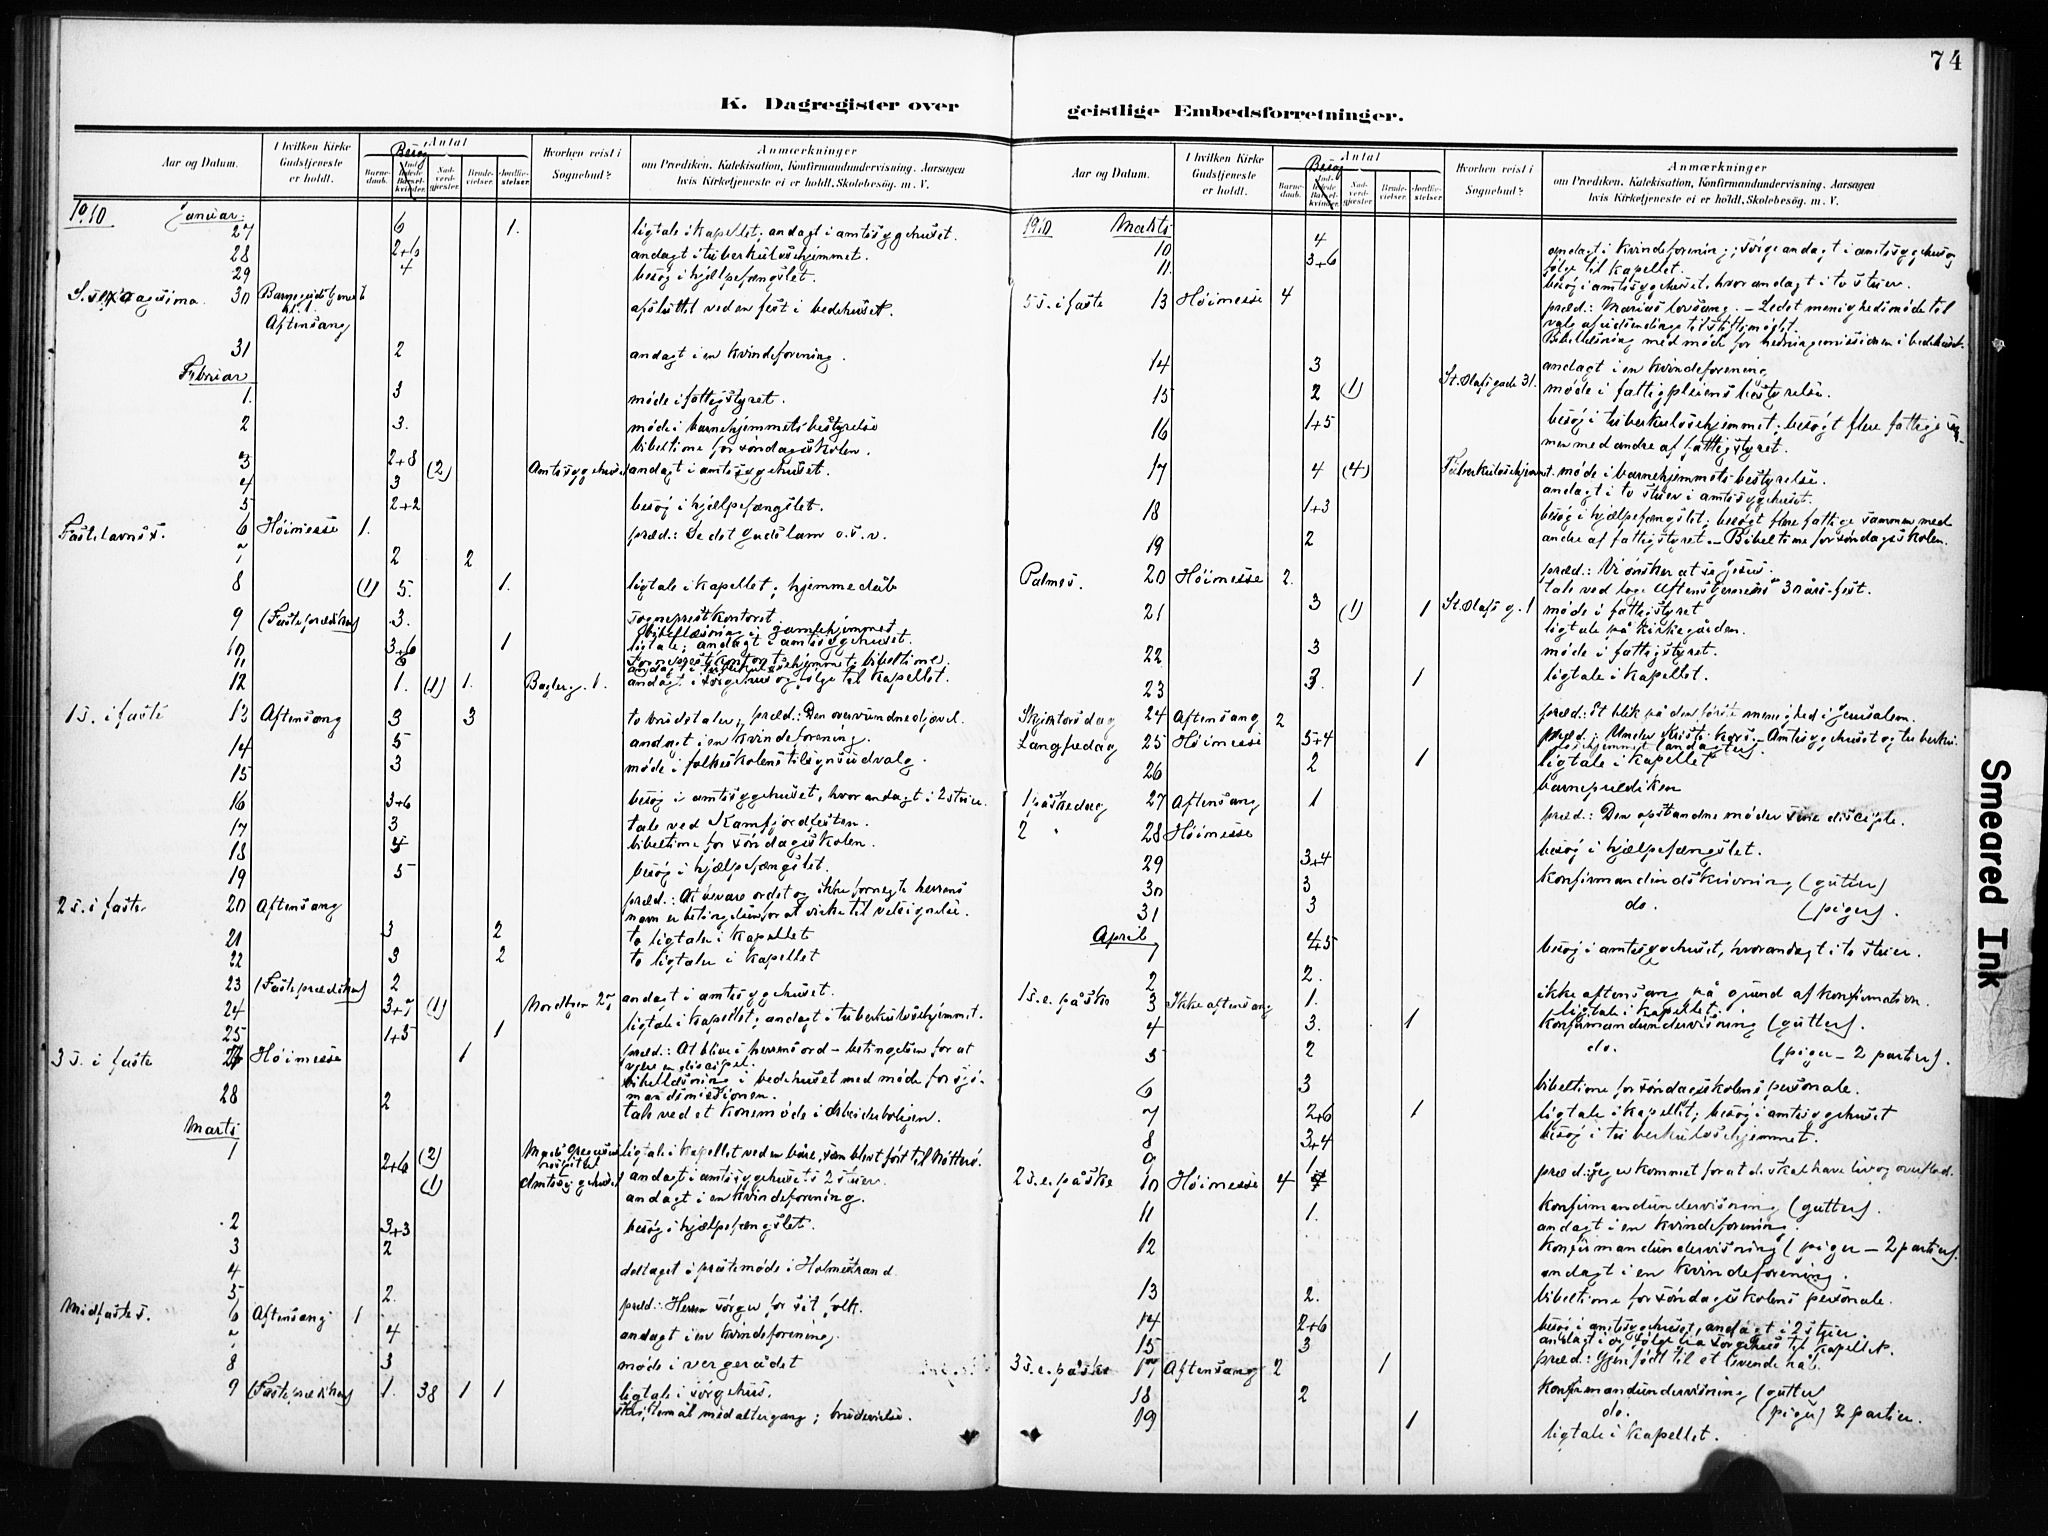 74
K. Dagregister over
geistlige Embedsforretninger.
Aar og Datum.
I hvilken Kirke Gudstjeneste er holdt.
Antal
Besøg
Barnedaab.
Indledede Barselkvinder.
Nadverdgjæster.
Brudevielser.
Jordfæstelser.
Hvorhen reist i Sognebud?
Anmærkninger
om Prædiken, Katekisation, Konfirmandundervisning, Aarsagen
hvis Kirketjeneste ei er holdt, Skolebesøg. m. V.
1910 Januar.
27 6 1. ligtale i kapellet; andagt i amtssygehuset.
28 2+6 andagt i tuberkulosehjemmet.
29 4 besøg i hjælpefængslet.
S. sexagesima 30 Barnegudstjenest
Aftensang afsluttet ved en fest i bedehuset.
31 2 andagt i en kvindeforening.
Februar
1. 3 møde i fattigstyret.
2 3. møde i barnehjemmets bestyrelse
bibeltime for søndagsskolen.
3 2+8 (2) Amtssygehuset andagt i amtssygehuset.
4 3
5 2+2 besøg i hjælpefængslet.
Fastelavns s. 6 Høimesse 1. præd.: Se det guds lam o.s.v.
7 2 2
8 (1) 5. 1. ligtale i kapellet; hjemmedåb
9 (Fasteprædiken) 3. sogneprestkontoret.
bibellæsning i gamlehjemmet
10 3+6 1 ligtale; andagt i amtssygehuset.
11 6
12 1. (1) 1. Bagler g. 1. andagt i sørgehus og følge til kapellet.
1 s. i faste 13 Aftensang 3 3 to brudetaler; præd.: Den overvundne djævel.
14 5 andagt i en kvindeforening.
15 3 møde i folkeskolens tilsynsudvalg.
16 3+6 besøg i amtssygehuset, hvor andagt i 2 stuer.
17 3 tale ved Ramfjordfesten.
18 5 bibeltime for søndagsskolen.
19 5 besøg i hjælpefængslet.
2 s. i faste 20 Aftensang præd.: At bevare ordet og ikke fornegte herrens
navn er betingelsen for at virke til velsignelse.
21 3 2 to ligtaler i kapellet
22 3 2 to ligtaler i kapellet
23 (Fasteprædiken) 2
24 3+7 (1) Nordbyen 27 andagt i amtssygehuset.
25 1+5 1 ligtale i kapellet; andagt i tuberkulosehjemmet.
3 s. i faste 27 Høimesse 1 præd.: At blive i herrens ord – betingelsen for at
være en discipel.
bibellæsning i bedehuset med møde for sjø-
28 2 mandsmissionen.
tale ved et konemøde i arbeiderboligen.
Marts
1 2+6 (2) ligtale i kapellet ved en båre, som blev ført til Nøtterø.
(1) Amtssygehuset andagt i amtssygehusets 2 stuer.
andagt i en kvindeforening.
2 3+3 besøg i hjælpefængslet.
3 2
4 deltaget i prestemøde i Holmestrand
5 2.
Midfaste s. 6 Aftensang 1 præd.: Herren sørger for sit folk.
7 4 andagt i en kvindeforening.
8 3 møde i vergerådet
9 (Fasteprædiken) 1. 38 1 1 ligtale i sørgehus.
skriftemål med altergang; brudevielse.
Aar og Datum.
I hvilken Kirke Gudstjeneste er holdt.
Antal
Besøg
Barnedaab.
Indledede Barselkvinder.
Nadverdgjæster.
Brudevielser.
Jordfæstelser.
Hvorhen reist i Sognebud?
Anmærkninger
om Prædiken, Katekisation, Konfirmandundervisning, Aarsagen
hvis Kirketjeneste ei er holdt, Skolebesøg. m. V.
1910 Marts
10 4 andagt i kvindeforening; andagt i amtssygehus og
følge til kapellet.
11. 3+6 besøg i amtssygehuset, hvor andagt i to stuer.
5 s. i faste 13 Høimesse 4 præd.: Marias lovsang. – Ledet menighedsmøde til
valg af udsendinge til stiftsmødet.
Bibellæsning med møde for hedningemissionen i bedehuset.
14 3 andagt i en kvindeforening
15 2 (1) St. Olafs gade 31. møde i fattigpleiens bestyrelse.
16 1+5 besøg i tuberkulosehjemmet. besøgt flere fattige sam-
men med andre af fattigstyret.
17 4 (4) Tuberkulosehjemmet. møde i barnehjemmets bestyrelse.
andagt i to stuer i amtssygehuset.
18 1+3 besøg i hjælpefængslet; besøgt flere fattige sammen med
19 2 andre af fattigstyret. – Bibeltime for søndagsskolen.
Palmes. 20 Høimesse 2. præd.: Vi ønsker at se Jesus.
tale ved loge Aftenstjernens 30 års-fest.
21 3 (1) 1 St. Olafs g. 1 møde i fattigstyret
ligtale på kirkegården.
22 3 møde i fattigstyret.
23 3. 1 ligtale i kapellet.
Skjærtorsdag 24 Aftensang 2 præd.: Et blik på den første menighed i Jerusalem.
Langfredag 25 Høimesse 5+4 præd.: Under Kristi kors. – Amtssygehuset og tuberku-
losehjemmet (andagter)
26 2 1 ligtale i kapellet
1 påskedag 27 Aftensang 1 barneprædiken
2 " 28 Høimesse præd.: Den opstandne møder sine disciple.
29 3+4 besøg i hjælpefængslet.
30 3 konfirmandindskrivning (gutter)
31 3 do. (piger).
April
1 4+5 besøg i amtssygehuset, hvor andagt i to stuer.
2 2.
1 s. e. påske 3 Ikke aftensang 1. ikke aftensang på grund af konfirmation.
4 3. 1 ligtale i kapellet.
konfirmandundervisning (gutter).
5 2 do. (piger – 2 partier).
6 3 bibeltime for søndagsskolens personale.
7 2+6 1 ligtale i kapellet; besøg i amtssygehuset
8 3+4 besøg i tuberkulosehjemmet.
9 1
2 s. e. påske 10 Høimesse 4 præd.: Jeg er kommet for at de skal have liv og overflod.
11 1. konfirmandundervisning (gutter).
andagt i en kvindeforening.
12 konfirmandundervisning (piger – 2 partier).
andagt i en kvindeforening.
13 2. bibeltime for søndagsskolens personale.
14 2+6 besøg i amtssygehuset, andagt i 2 stuer.
15 3 andagt i og følge fra sørgehus til kapellet.
3 s. e. påske 17 Aftensang 2 1 præd.: Gjenfødt til et levende håb.
18 2 konfirmandundervisning (gutter)
do. (piger) 2 partier.
19 1 ligtale i kapellet.
Smeared Ink